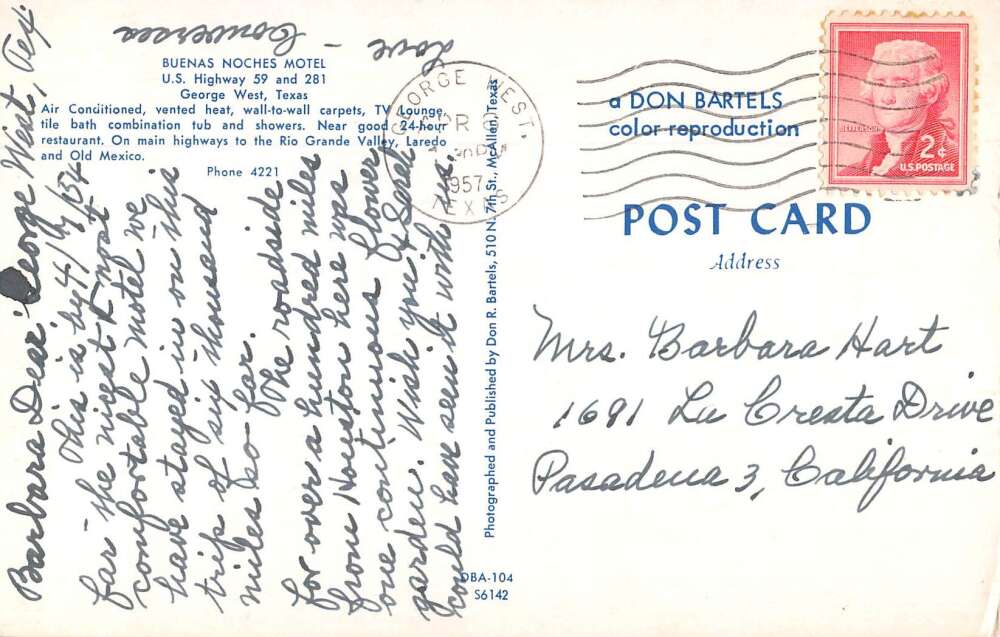 BUENAS NOCHES MOTEL
U.S. Highway 59 and 281
George West, Texas
Air Conditioned, vented heat, wall-to-wall carpets, TV Lounge,
tile bath combination tub and showers. Near good 24-hour
restaurant. On main highways to the Rio Grande Valley, Laredo
and Old Mexico.
Phone 4221
Barbara Dear George West, Tex.
This is by 4/19/57
far the nicest & most
comfortable motel we
have stayed in on this
trip of six thousand
miles so far.
The roadside
for over a hundred miles
from Houston here was
one continuous flower
garden. Wish you & Sarah
could have seen it with us.
Love -
Photographed and Published by Don R. Bartels, 510 N. 7th St., McAllen, Texas
DBA-104
S6142
GEORGE WEST,
APR
1957
TEXAS
a DON BARTELS
color reproduction
JEFFERSON
2¢
U.S. POSTAGE
POST CARD
Address
Mrs. Barbara Hart
1691 La Cresta Drive
Pasadena 3, California